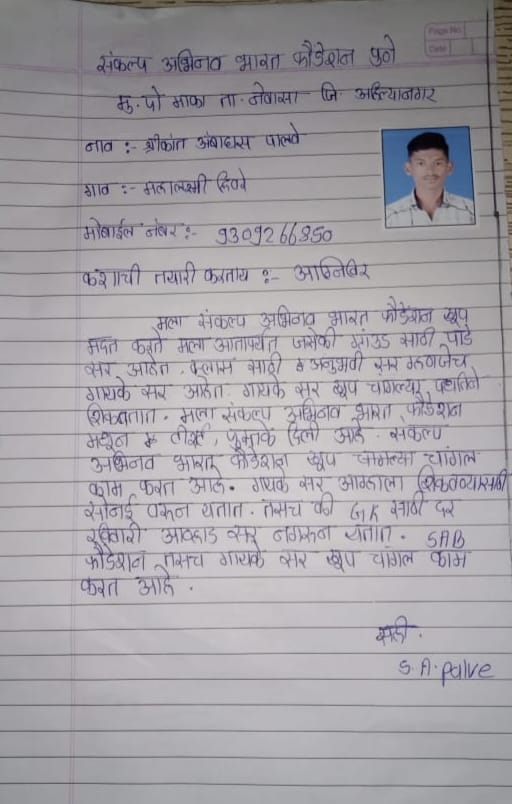 Page No.
Date
संकल्प अभिनव भारत फौंडेशन पुणे
मु. पो माका ता. नेवासा जि. अहिल्यानगर
नाव :- श्रीकांत अंबादास पालवे
गाव :- महालक्ष्मी हिवरे
मोबाईल नंबर :- 9309266850
कशाची तयारी करताय :- अग्निविर
मला संकल्प अभिनव भारत फौंडेशन खूप
मदत करते मला आतापर्यंत जसेकी ग्राउंड साठी पांडे
सर आहेत. क्लास साठी अनुभवी सर म्हणजेच
गायके सर आहेत. गायके सर खूप चांगल्या पद्धतिने
शिकवतात. मला संकल्प अभिनव भारत फौंडेशन
मधून टीशर्ट, पुस्तके दिली आहे. संकल्प
अभिनव भारत फौंडेशन खूप चांगल्या चांगल
काम करत आहे. गायके सर आम्हाला शिकवण्यासाठी
सोनई वरून येतात. तसेच की GK साठी दर
रविवारी आव्हाड सर नगरून येतात. SAB
फौंडेशन तसेच गायके सर खूप चांगल काम
करत आहे.
सही.
S. A. Palve